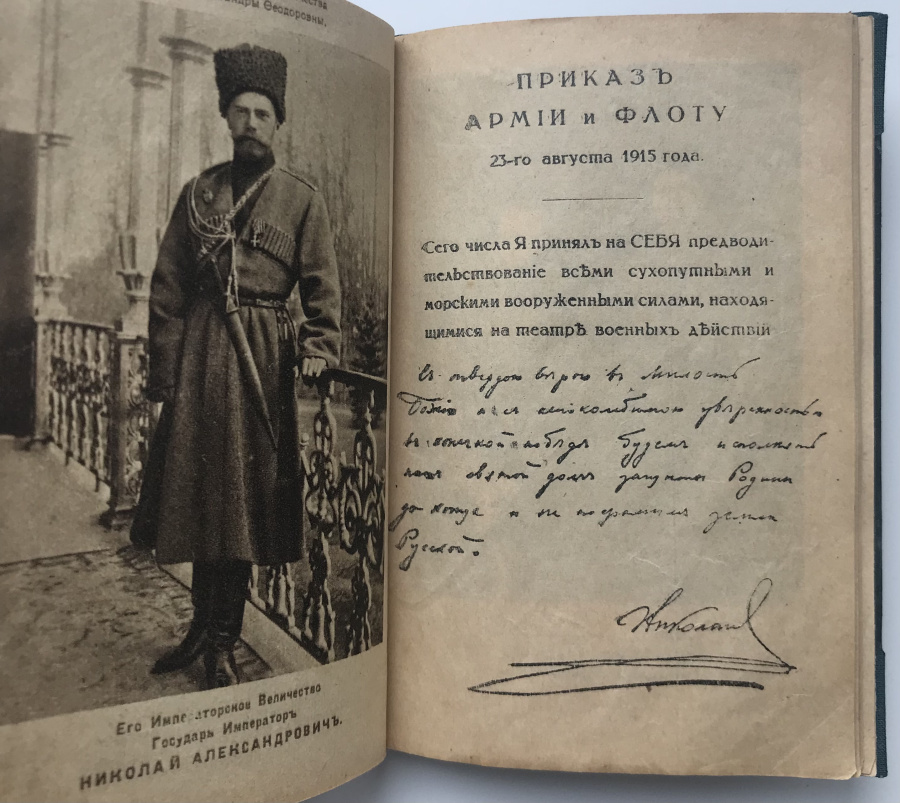 ства
андры Ѳеодоровны,
Его Императорское Величество
Государь Императоръ
НИКОЛАЙ АЛЕКСАНДРОВИЧЪ.
ПРИКАЗЪ
АРМІИ и ФЛОТУ
23-го августа 1915 года.
Сего числа Я принялъ на СЕБЯ предводи-
тельствованіе всѣми сухопутными и
морскими вооруженными силами, находя-
щимися на театрѣ военныхъ дѣйствій
Съ твердою вѣрою въ милость
Божію и съ непоколебимою увѣренностью
въ конечной побѣдѣ будемъ исполнять
нашъ святой долгъ защиты Родины
до конца и не посрамимъ земли
Русской.
Николай